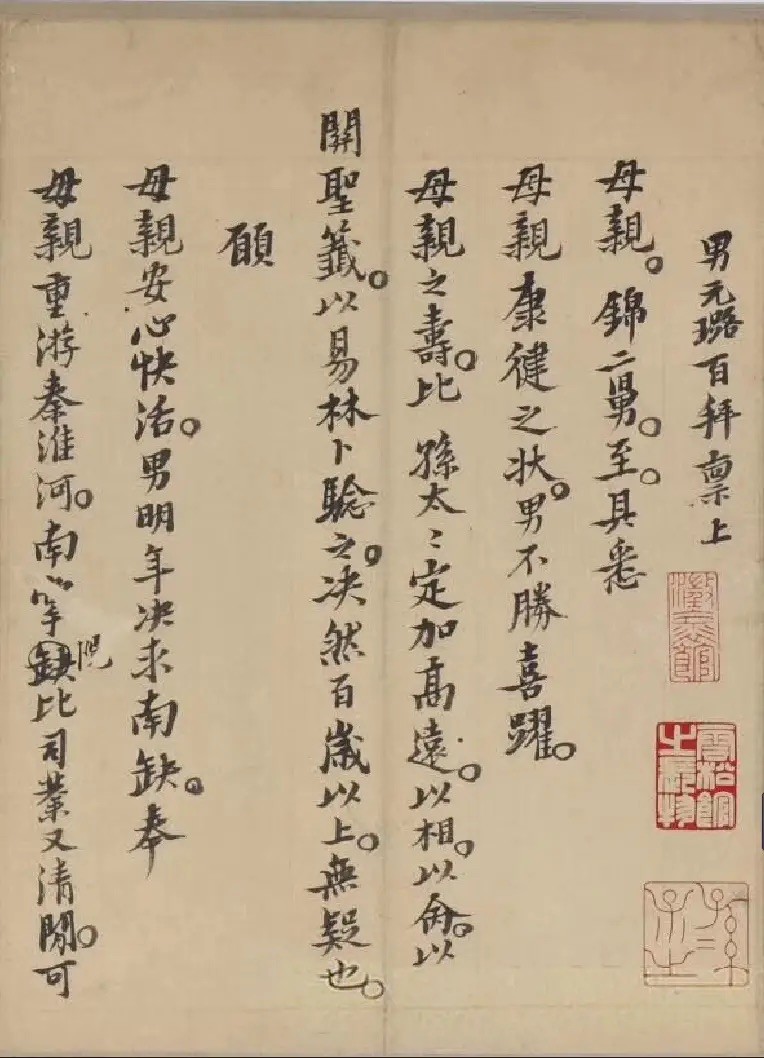 男元璐百拜稟上
母親。錦二舅。至。具悉
母親康徤之狀。男不勝喜躍。
母親之壽。比 孫太〻定加高遠。以相。以命。以
開聖籤。以易林卜驗之。决然百歲以上。無疑也。
願
母親安心快活。男明年决求南缺。奉
母親重游秦淮河。南掌院比司業又清閒。可